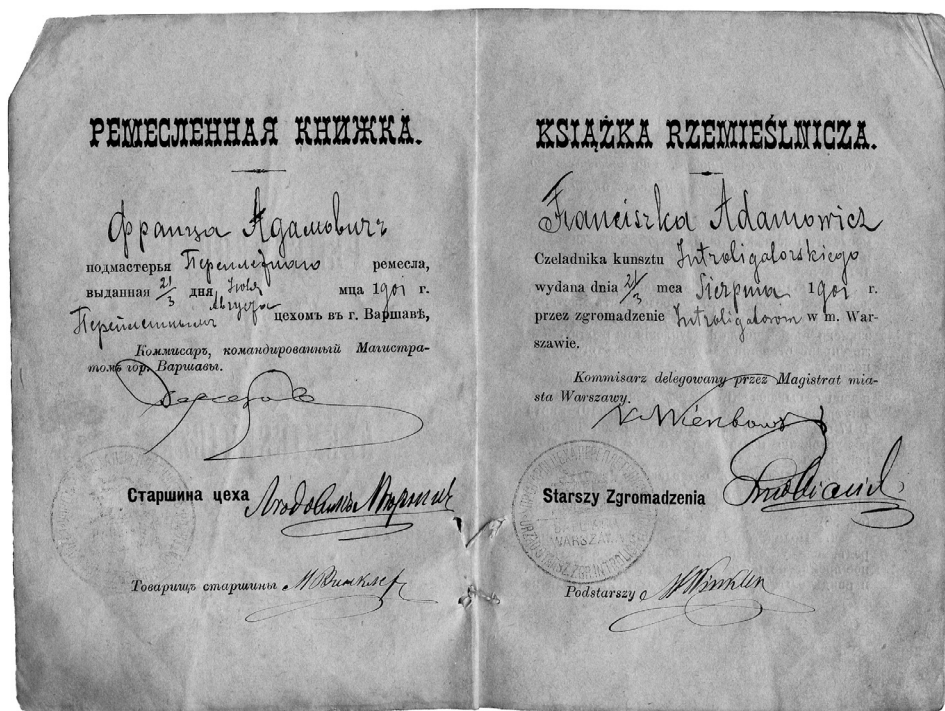 РЕМЕСЛЕННАЯ КНИЖКА.
Франца Адамовичъ
подмастерья Переплетнаго ремесла,
выданная 21/3 дня Июля Августа мца 1901 г.
Переплетнымъ цехомъ въ г. Варшавѣ,
Коммисаръ, командированный Магистра-
томъ гор. Варшавы.
Старшина цеха
Товарищъ старшины Винклер
KSIĄŻKA RZEMIEŚLNICZA.
Franciszka Adamowicz
Czeladnika kunsztu Introligatorskiego
wydana dnia 21/3 mca Sierpnia 1901 r.
przez zgromadzenie Introligatorow w m. War-
szawie.
Kommisarz delegowany przez Magistrat mia-
sta Warszawy.
Starszy Zgromadzenia
WARSZAWA
Podstarszy Winkler